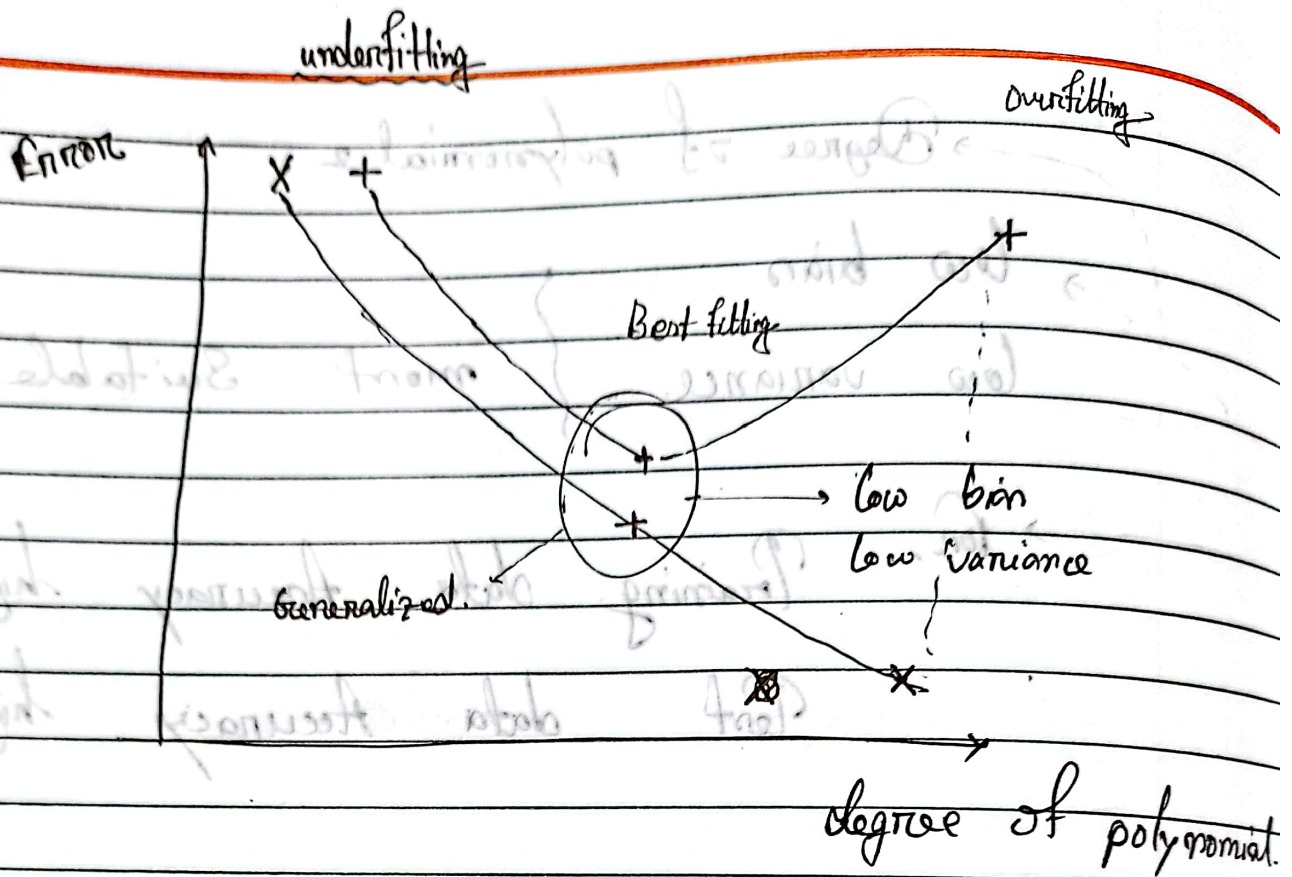 underfitting
Overfitting
Error
X +
+
Best fitting
+
+
low bias
low variance
Generalized.
X
degree of polynomial.